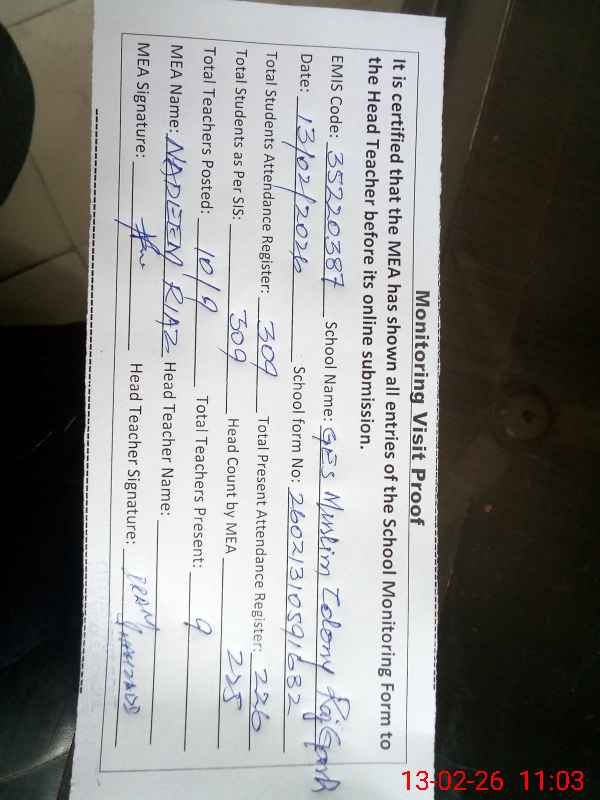 Monitoring Visit Proof
It is certified that the MEA has shown all entries of the School Monitoring Form to
the Head Teacher before its online submission.
EMIS Code: 35220387 School Name: GES Muslim Colony Rajgarh
Date: 13/02/2026 School form No: 260213105916 32
Total Students Attendance Register: 309 Total Present Attendance Register: 226
Total Students as Per SIS: 309 Head Count by MEA 225
Total Teachers Posted: 10/9 Total Teachers Present: 9
MEA Name: NADEEM RIAZ Head Teacher Name:
MEA Signature: Head Teacher Signature: IRAM SHAHZADI
13-02-26 11:03